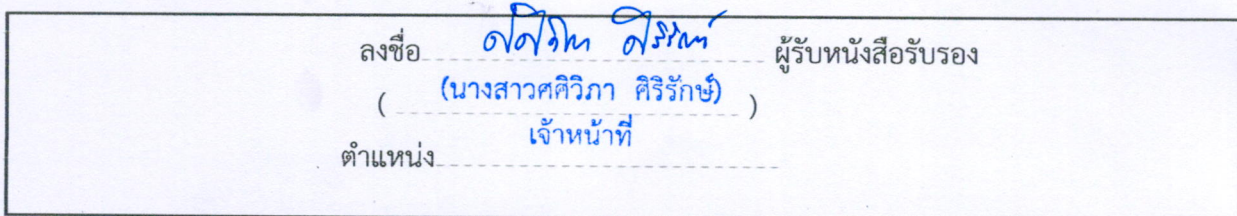 ลงชื่อ ศศิวิภา ศิริรักษ์ ผู้รับหนังสือรับรอง
( (นางสาวศศิวิภา ศิริรักษ์) )
เจ้าหน้าที่
ตำแหน่ง